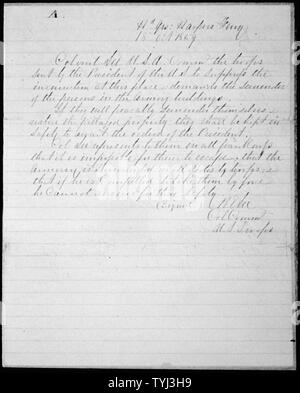 A
Hd Qrs: Harpers Ferry
18 Oct 1859
Colonel Lee U.S.A. Comm the troops
sent by the President of the U.S. to suppress the
insurrection at this place demands the surrender
of the persons in the armory buildings.
If they will peaceably surrender themselves &
restore the pillaged property, they shall be kept in
safety to await the orders of the President.
Col Lee represents to them in all frankness
that it is impossible for them to escape, that the
armory is surrounded on all sides by troops, &
that if he is compelled to take them by force
he cannot answer for their safety.
R E Lee
Col Comm
U.S. Troops
alamy
www.alamy.com
TYJ3H9